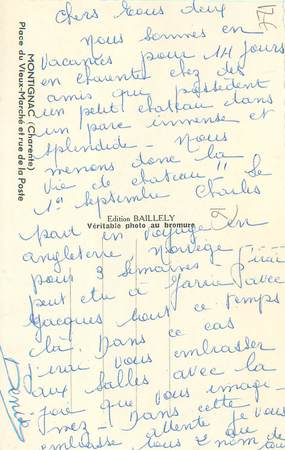 17
Chers tous deux
Nous sommes en
vacances pour 14 jours
en charente chez des
amis qui possèdent
un petit chateau dans
un parc immense et
splendide - Nous
menons donc la
vie de chateau !! Le
1er Septembre Charles
part en voyage en
angleterre Norvège
pour 3 semaines - J'irai
peut etre à avec
Jacques tout ce temps
là. Dans ce cas
j'irai vous embrasser
aux Salles avec la
joie que vous imagi-
nez - Dans cette
attente je vous
embrasse tous
Denise
MONTIGNAC (Charente)
Place du Vieux-Marché et rue de la Poste
Edition BAILLELY
Véritable photo au bromure